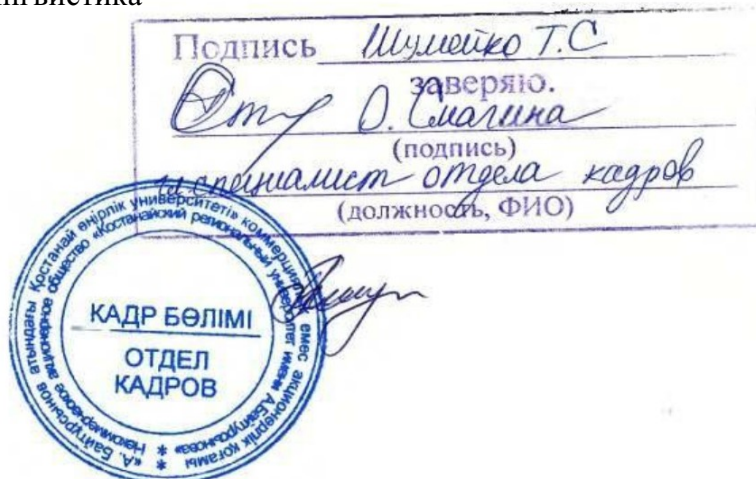 нгвистика
Подпись Шумейко Т.С
заверяю.
О. Смагина
(подпись)
специалист отдела кадров
(должность, ФИО)
«А. Байтұрсынов атындағы Қостанай өңірлік университеті» коммерциялық емес акционерлік қоғамы
Некоммерческое акционерное общество «Костанайский региональный университет имени А.Байтурсынова»
КАДР БӨЛІМІ
ОТДЕЛ
КАДРОВ